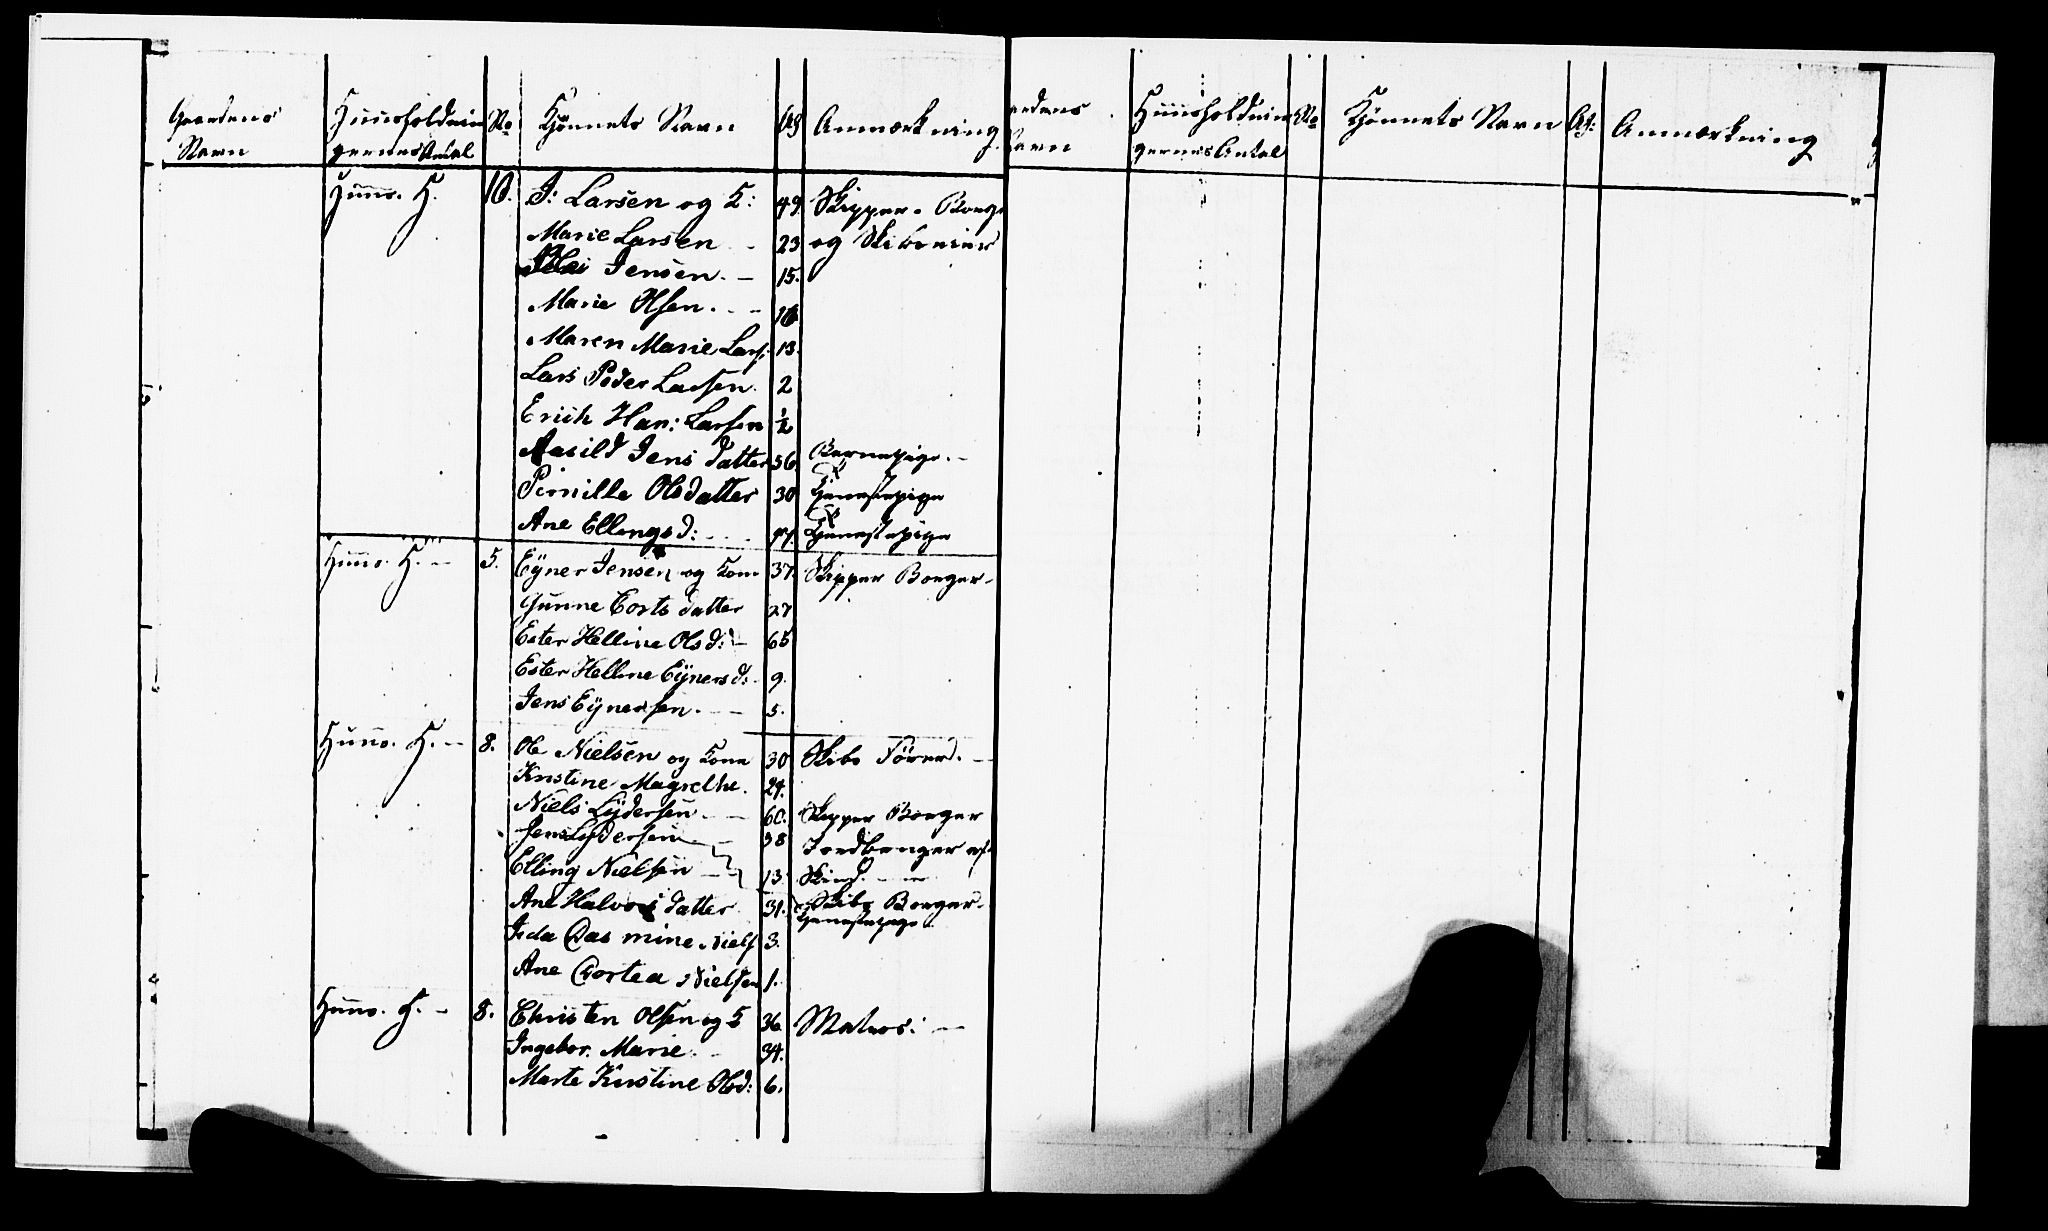 Gaardens Huusholdnin No Kjönnets Navn Alg Anmærkning
Navn gernes Antal
Huus. H. 10. J: Larsen og K: 49. Skipper-Borge
Marie Larsen - 23 og Skibs
Jensen. - 15.
Marie Olsen. - - 16
Maren Marie Lars: 13.
Lars Peder Larsen. 2
Erich Han: Larsen ½
Aasild Jens datter 56 Barnepige. -
Pernille Olsdatter 30 Tjenestepige
Ane Ellingsd: - - Tjenestepige
Huus. H. - 5. Eÿner Jensen og Kone 37. Skipper Borger -
Gunne Corts datter 27
Ester Helline Olsd: - 65
Ester Helline Eÿnersd: - 9.
Jens Eÿnersen. - - 5.
Huus. H. - 8. Ole Nielsen og Kone 30 Skibs Förer. -
Kirstine Magrethe. 29.
Niels Lÿdersen - - 60. Skipper Borger
Jens Lÿdersen - 38
Elling Nielsen - 13.
Ane Halvors datter 31. Skibs Borger.
Tjenestepige
Ida Das mine Niels 3.
Ane Dortea Nielsen 1.
Huus. H. - 8. Christen Olsen og K 36. Matros: -
Ingebor. Marie. - 34.
Marte Kirstine Olsd: 6.
ardens Huusholdnin No Kjönnets Navn Al: Anmærkning
Navn gernes Antal